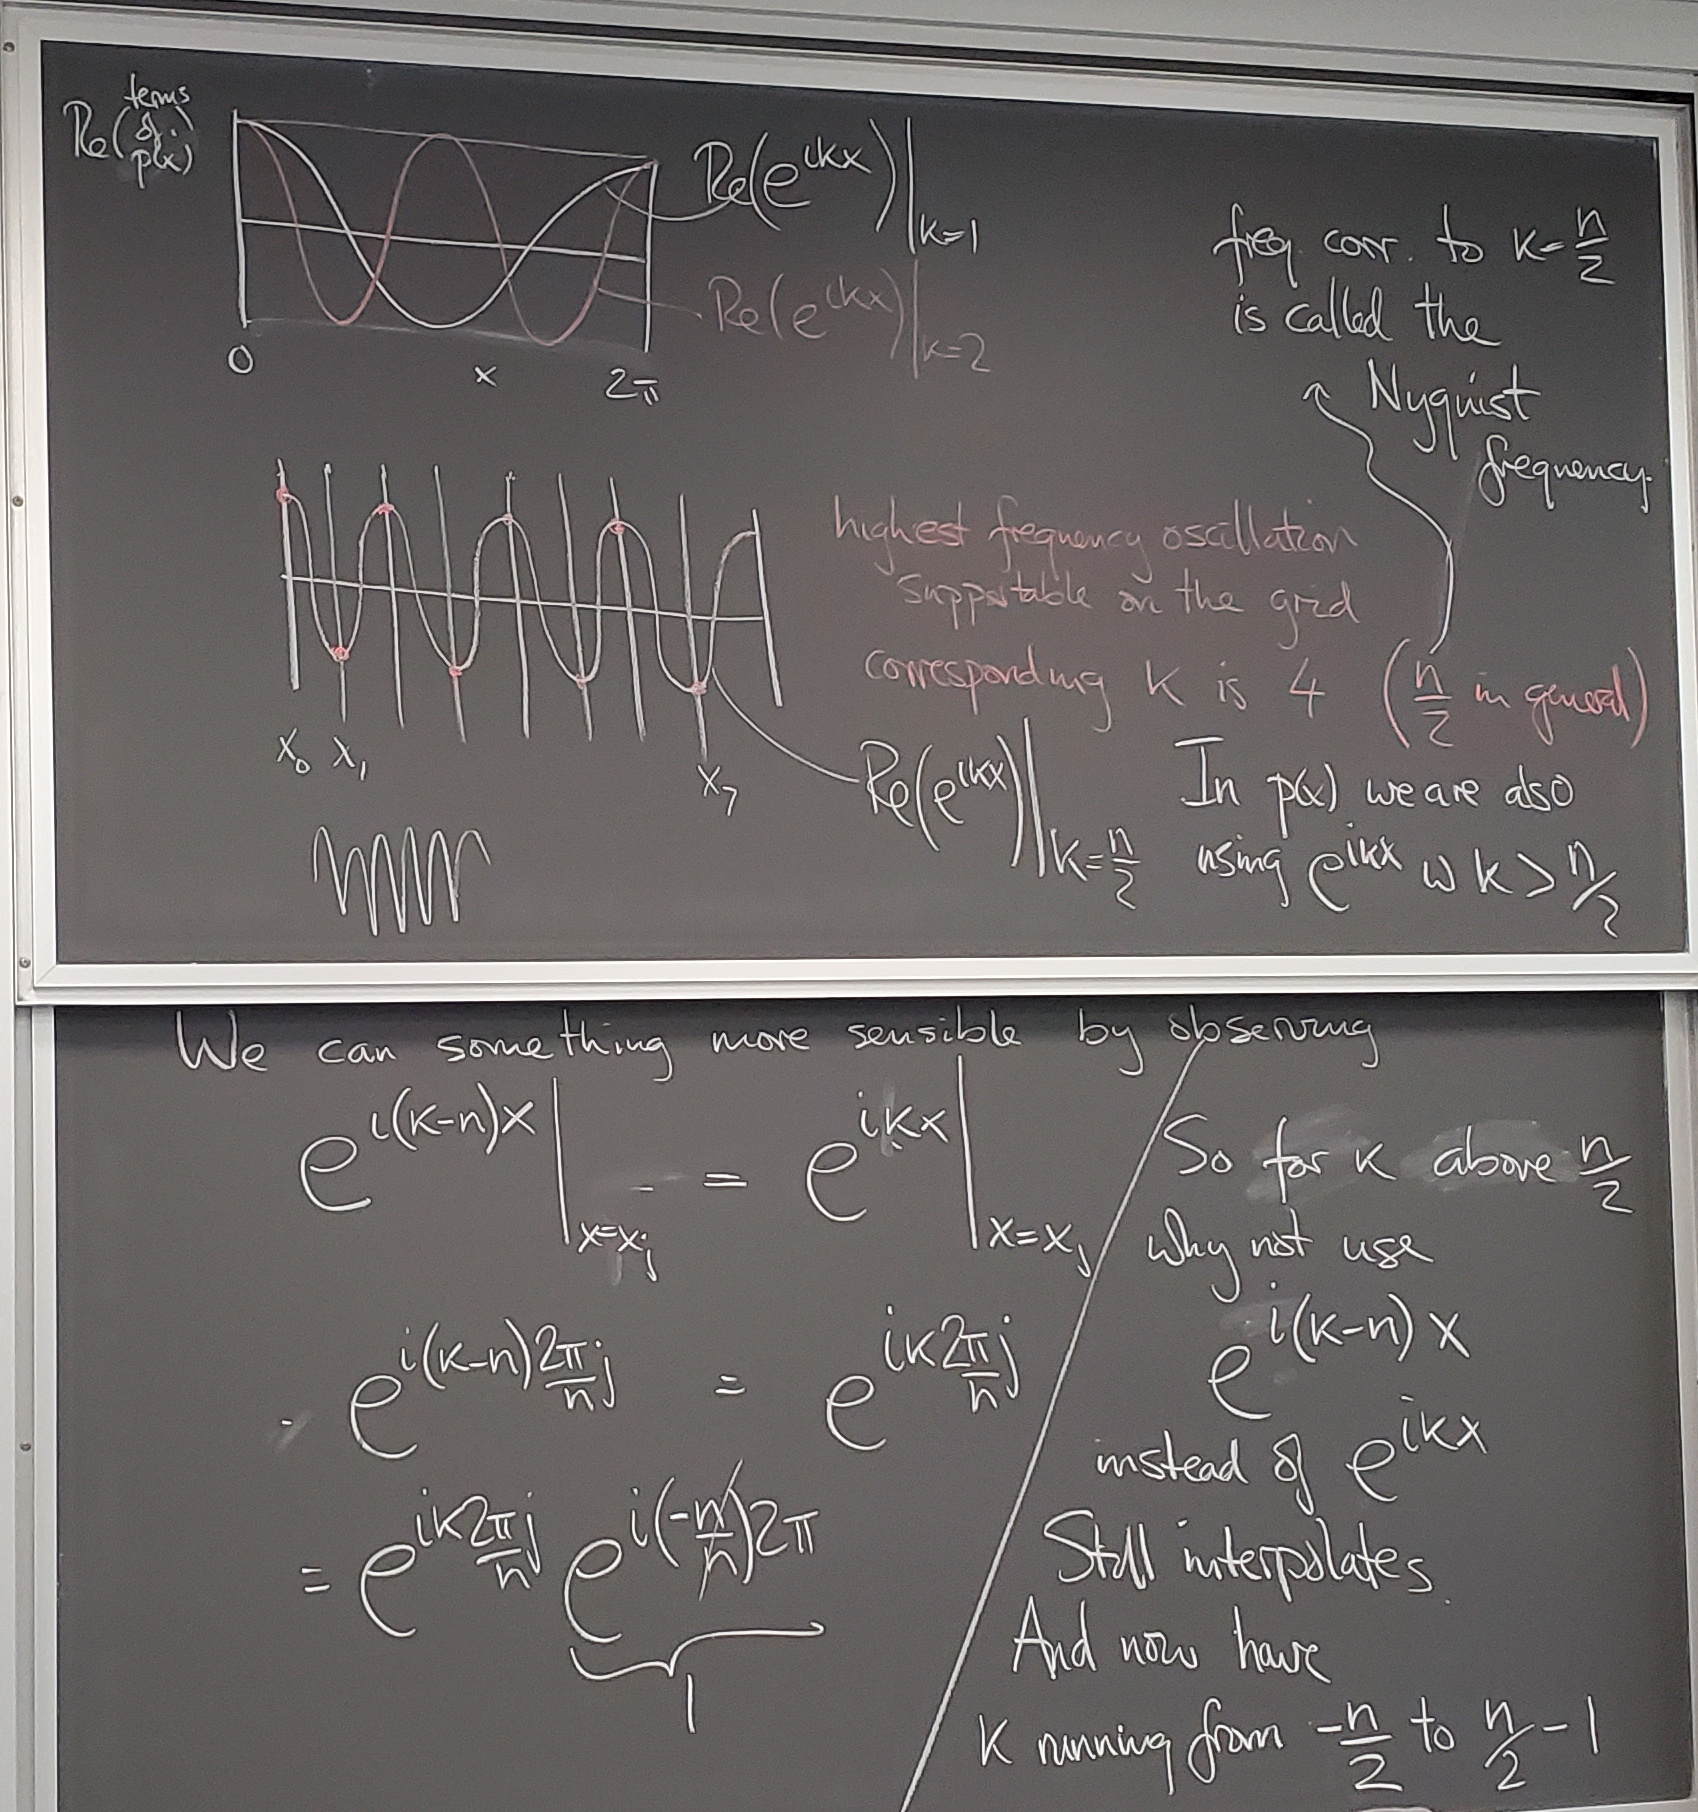 Re(terms of p(x))
Re(e^{ikx})|_{k=1}
Re(e^{ikx})|_{k=2}
0 x 2π
freq. corr. to k=n/2
is called the
Nyquist
frequency.
highest frequency oscillation
supportable on the grid
corresponding k is 4 (n/2 in general)
x_0 x_1 x_7
Re(e^{ikx})|_{k=n/2}
In p(x) we are also
using e^{ikx} w k > n/2
We can something more sensible by observing
e^{i(k-n)x}|_{x=x_j} = e^{ikx}|_{x=x_j}
e^{i(k-n)2π/n j} = e^{ik2π/n j}
= e^{ik2π/n j} e^{i(-n/n)2π}
1
So for k above n/2
why not use
e^{i(k-n)x}
instead of e^{ikx}
Still interpolates.
And now have
k running from -n/2 to n/2-1